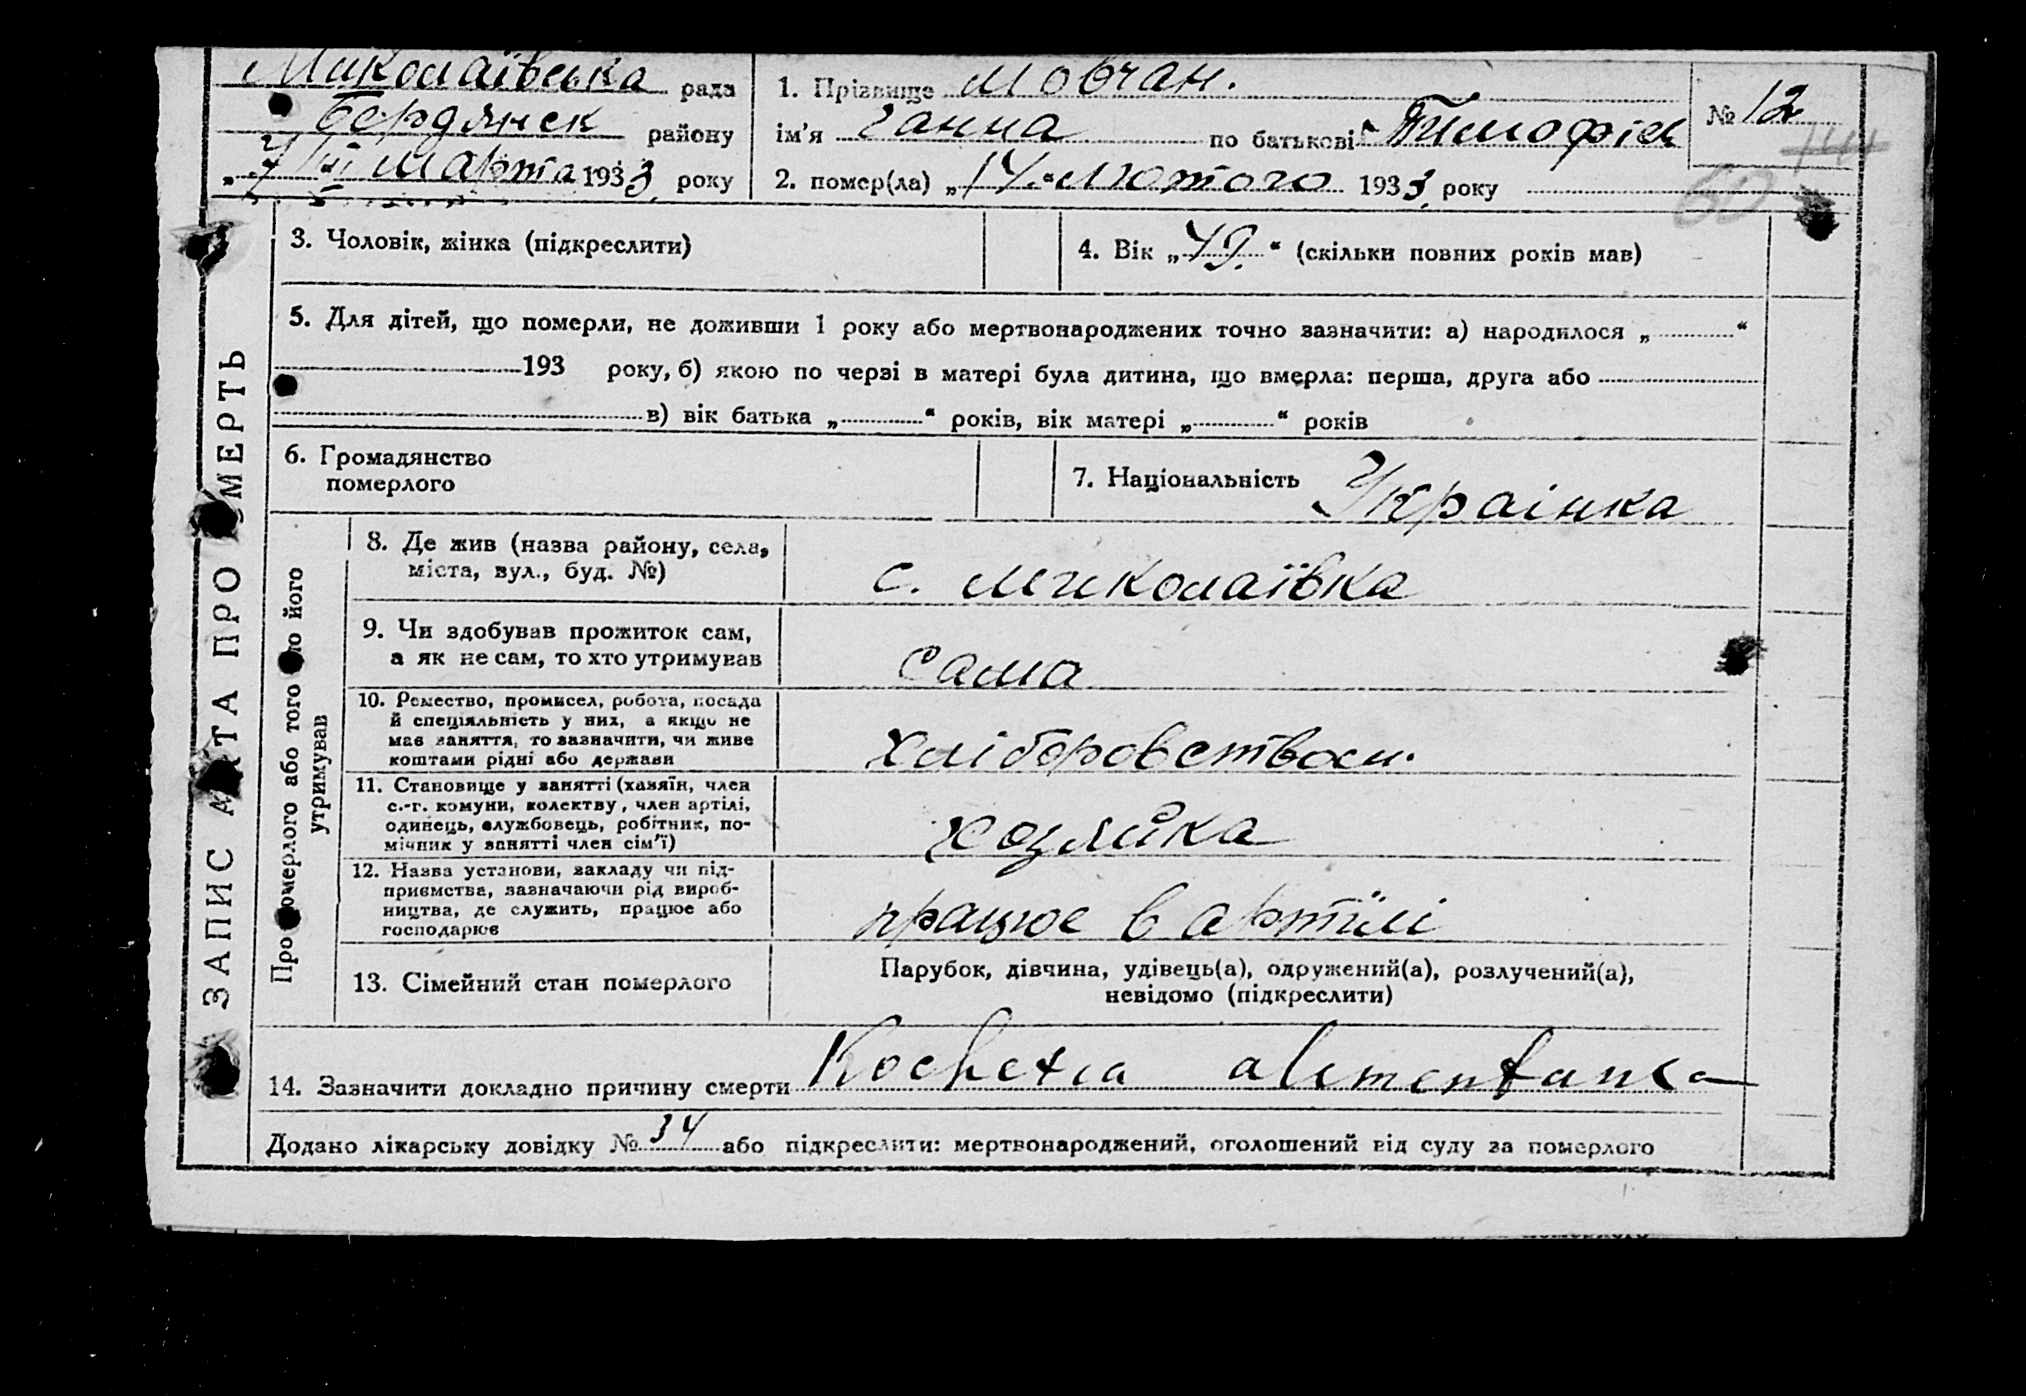 Миколаївська рада
Бердянск району
„7" Марта 1933 року
1. Прізвище Мовчан.
ім'я Ганна по батькові Тимофієв
2. помер(ла) „14" Лютого 1933 року
№ 12
144
60
ЗАПИС АКТА ПРО СМЕРТЬ
3. Чоловік, жінка (підкреслити)
4. Вік „49." (скільки повних років мав)
5. Для дітей, що померли, не доживши 1 року або мертвонароджених точно зазначити: а) народилося „ "
193 року, б) якою по черзі в матері була дитина, що вмерла: перша, друга або
в) вік батька „ " років, вік матері „ " років
6. Громадянство
померлого
7. Національність Украінка
Про померлого або того хто його
утримував
8. Де жив (назва району, села,
міста, вул., буд. №)
с. Миколаївка
9. Чи здобував прожиток сам,
а як не сам, то хто утримував
сама
10. Ремество, промисел, робота, посада
й спеціяльність у них, а якщо не
мав заняття, то зазначити, чи живе
коштами рідні або держави
хліборобством.
11. Становище у занятті (хазяїн, член
с.-г. комуни, колектву, член артілі,
одинець, службовець, робітник, по-
мічник у занятті член сім'ї)
хозяйка
12. Назва установи, закладу чи під-
приємства, зазначаючи рід вироб-
ництва, де служить, працює або
господарює
працює в артілі
13. Сімейний стан померлого
Парубок, дівчина, удівець(а), одружений(а), розлучений(а),
невідомо (підкреслити)
14. Зазначити докладно причину смерти Kochexia alimentania
Додано лікарську довідку № 34 або підкреслити: мертвонароджений, оголошений від суду за померлого